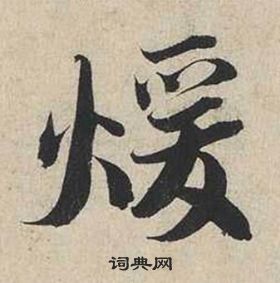 煖
词典网